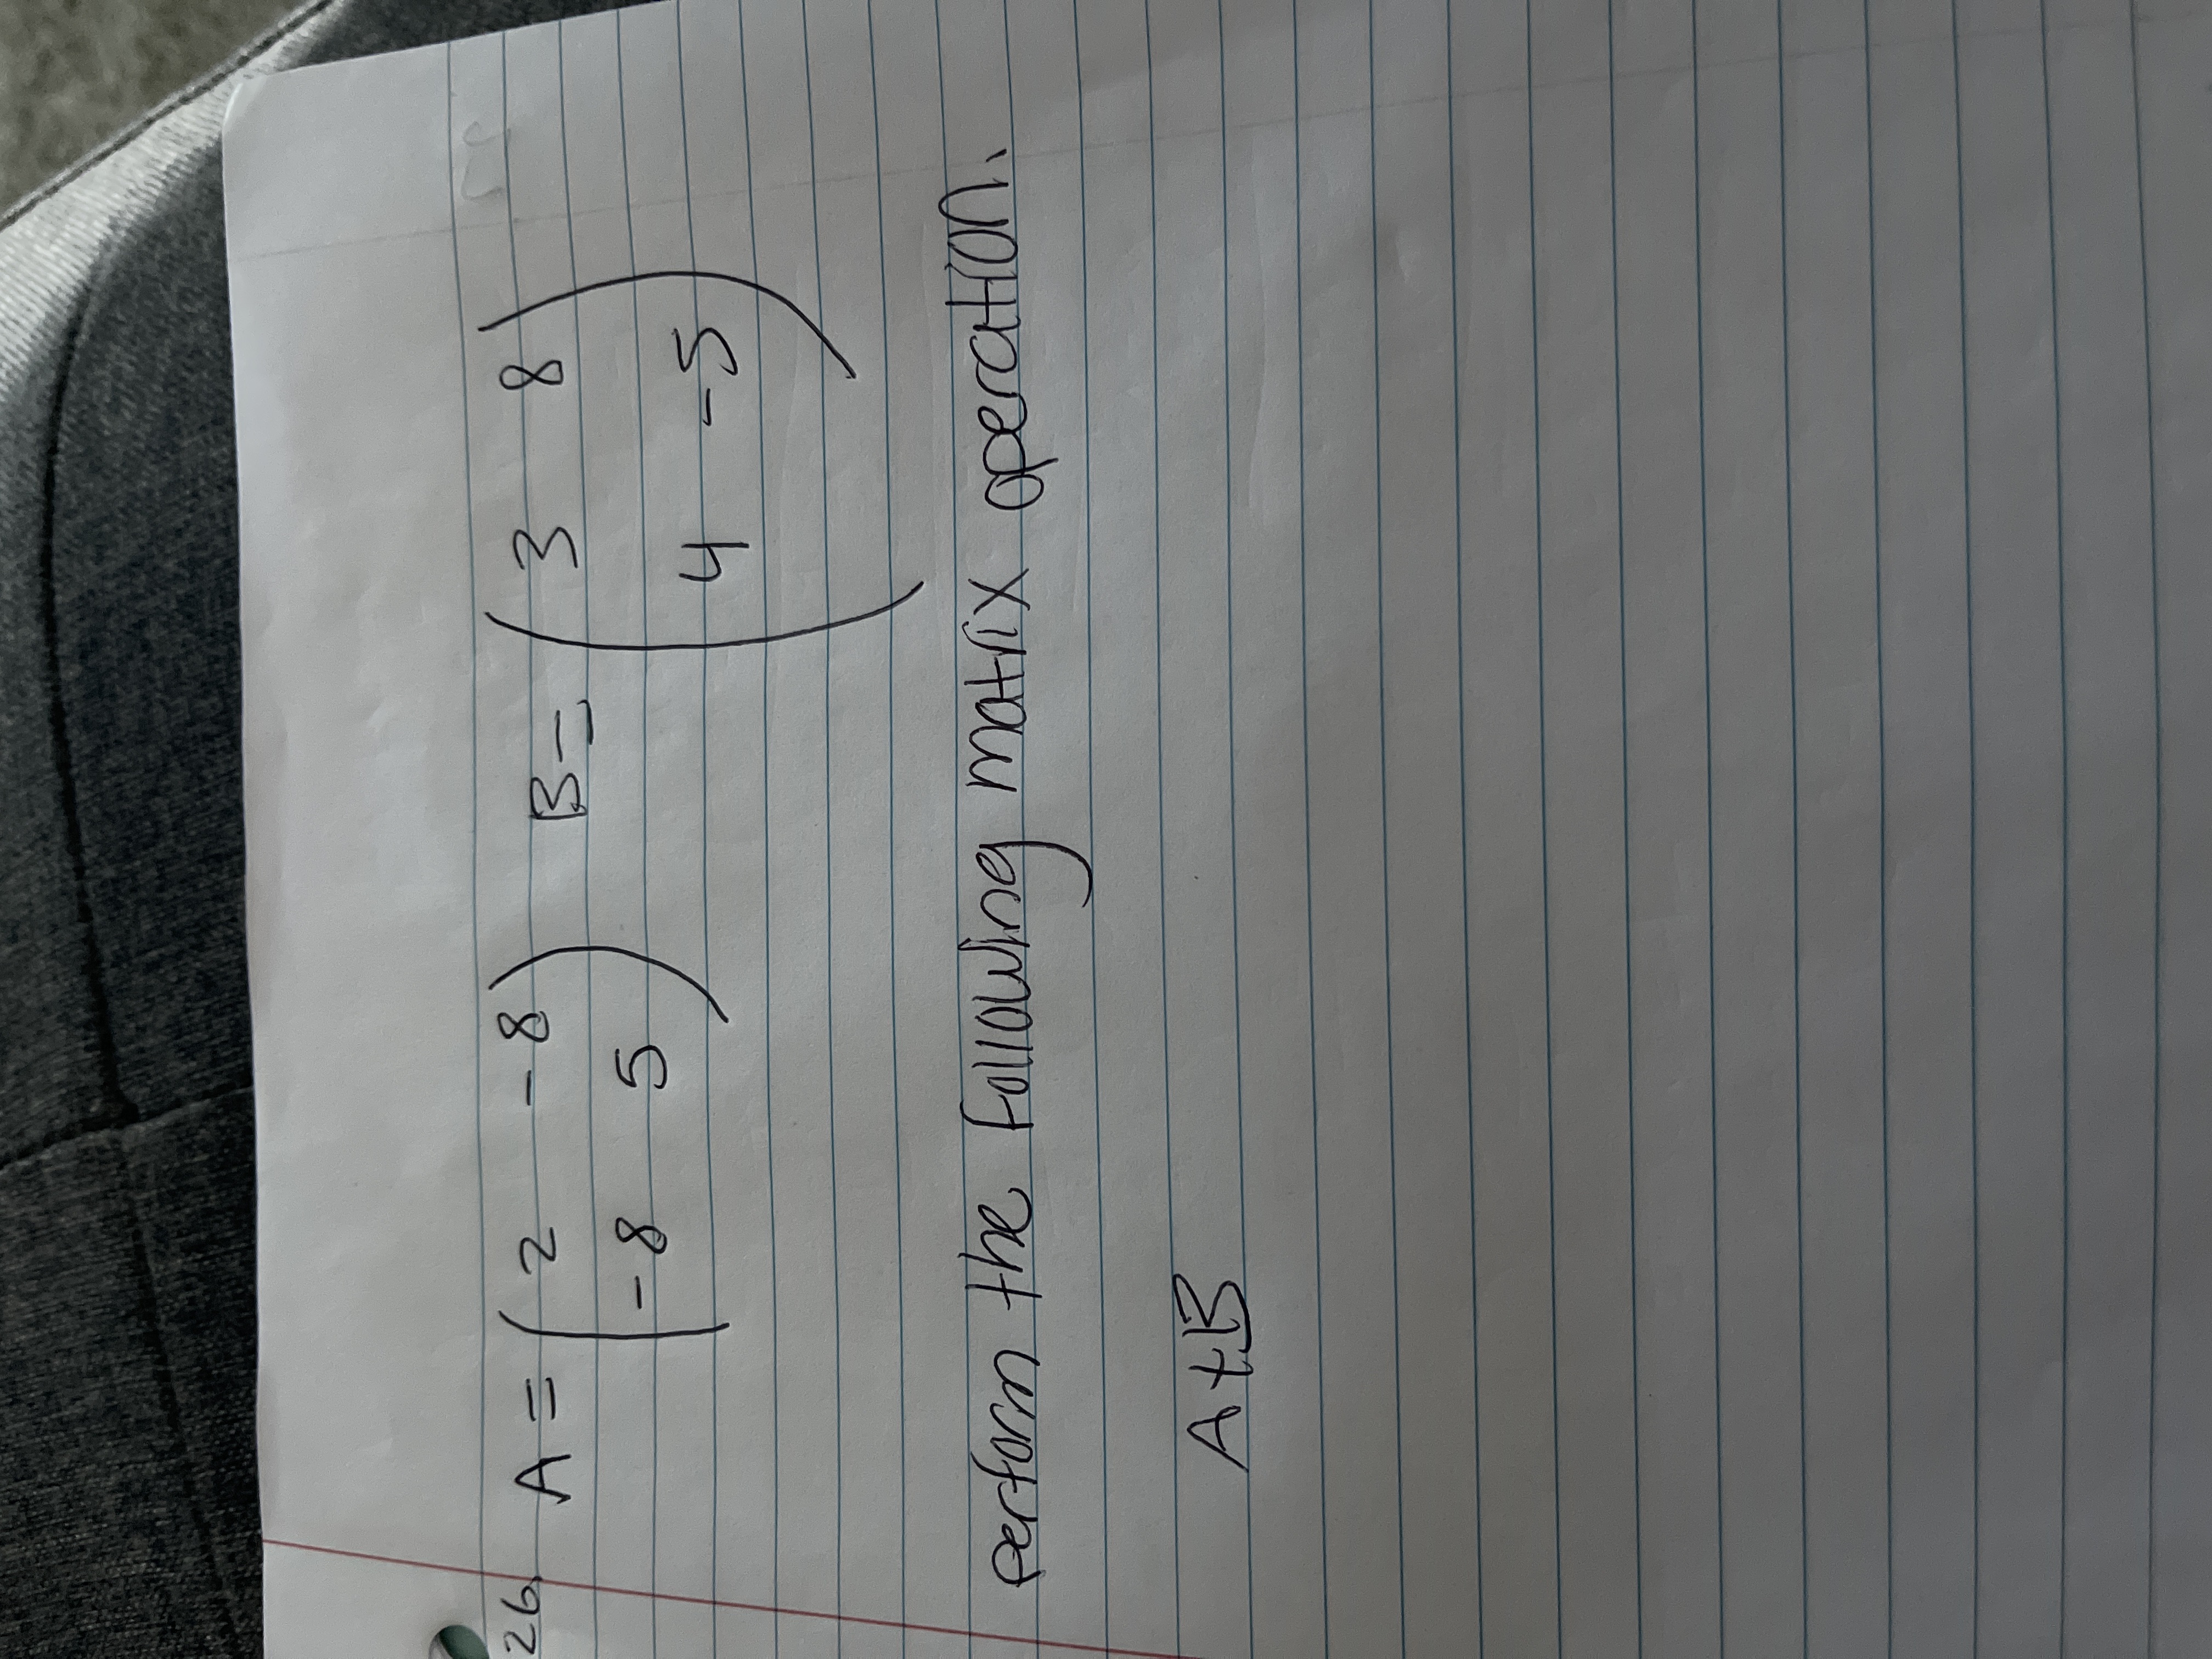 26. A = ( 2 -8 ) B = ( 3 8 )
( -8 5 ) ( 4 -5 )
perform the following matrix operation.
A+B